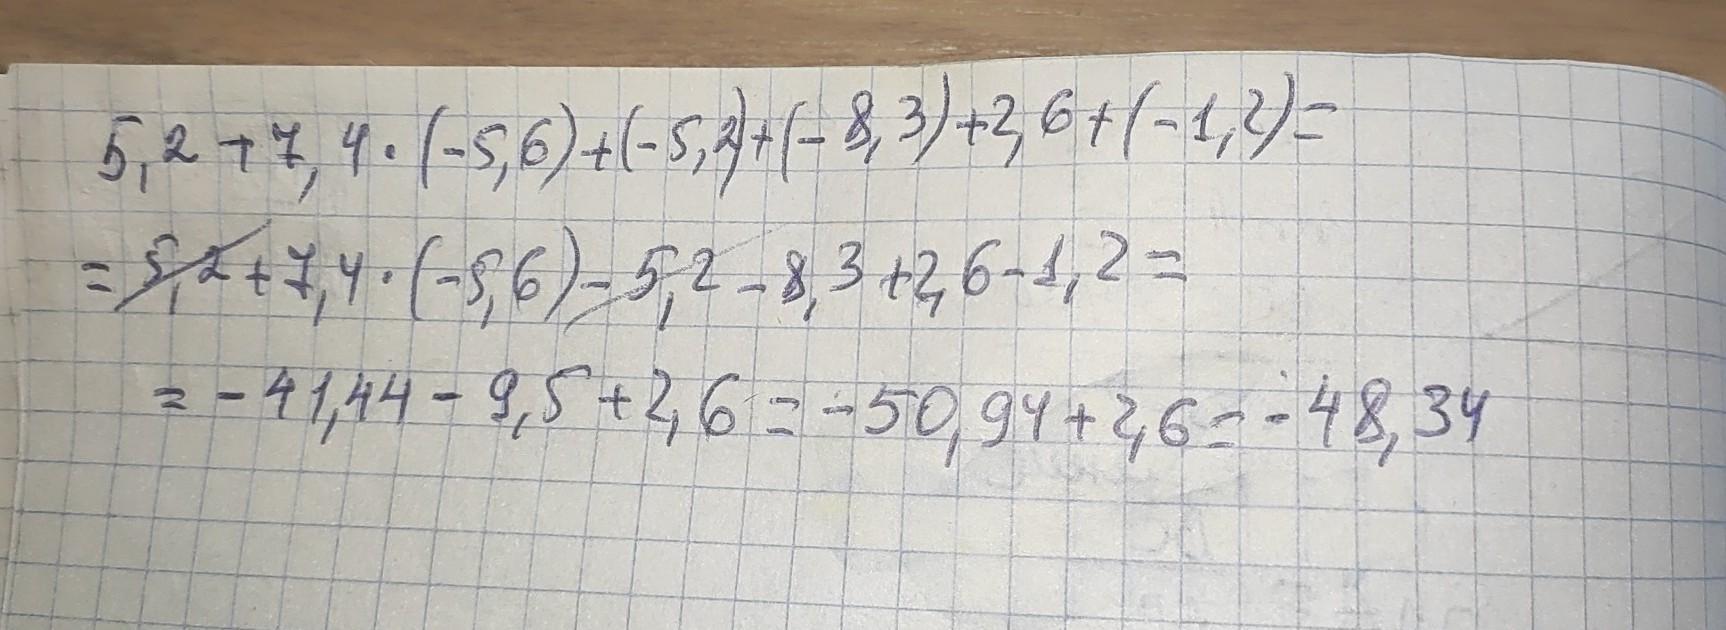 5,2+7,4·(-5,6)+(-5,2)+(-8,3)+2,6+(-1,2)=
=5,2+7,4·(-5,6)-5,2-8,3+2,6-1,2=
=-41,44-9,5+2,6=-50,94+2,6=-48,34